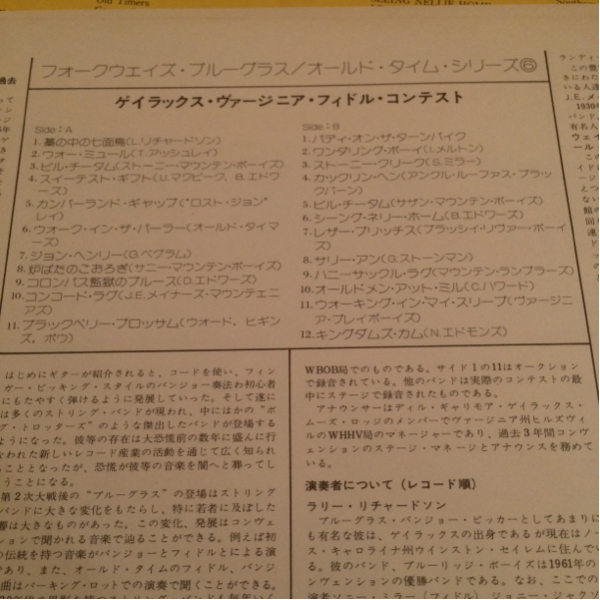 Old Timers
SEEING NELLIE HOME
フォークウェイズ・ブルーグラス/オールド・タイム・シリーズ⑥
ゲイラックス・ヴァージニア・フィドル・コンテスト
Side:A
1.藁の中の七面鳥(L.リチャードソン)
2.ウォー・ミュール(T.アッシュレイ)
3.ビル・チータム(ストーニー・マウンテン・ボーイズ)
4.スイーテスト・ギフト(U.マクピーク, B.エドワ
ーズ)
5.カンバーランド・ギャップ("ロスト・ジョン"
レイ)
6.ウォーク・イン・ザ・パーラー(オールド・タイマ
ーズ)
7.ジョン・ヘンリー(G.ペグラム)
8.炉ばたのこおろぎ(サニー・マウンテン・ボーイズ)
9.コロンバス監獄のブルース(D.エドワーズ)
10.コンコード・ラグ(J.E.メイナーズ・マウンテェニ
アズ)
11.ブラックベリー・ブロッサム(ウォード, ヒギン
ズ, ボウ)
Side:B
1.パディ・オン・ザ・ターンパイク
2.ワンダリング・ボーイ(I.メルトン)
3.ストーニー・クリーク(S.ミラー)
4.カックリン・ヘン(アンクル・ルーファス・ブラッ
クバーン)
5.ビル・チータム(サザン・マウンテン・ボーイズ)
6.シーング・ネリー・ホーム(B.エドワーズ)
7.レザー・ブリッチス(ブラッシイ・リヴァー・ボーイ
ズ)
8.サリー・アン(G.ストーンマン)
9.ハニーサックル・ラグ(マウンテン・ランブラーズ)
10.オールドメン・アット・ミル(C.ハワード)
11.ウォーキング・イン・マイ・スリープ(ヴァージニ
ア・プレイボーイズ)
12.キングダムズ・カム(N.エドモンズ)
はじめにギターが紹介されると、コードを使い、フィン
ガー・ピッキング・スタイルのバンジョー奏法わ初心者
にもたやすく弾けるように発展していった。そして遂に
は多くのストリング・バンドが現われ、中にはかの"ボ
グ・トロッターズ"のような傑出したバンドが登場する
ようになった。彼等の存在は大恐慌前の数年に盛んに行
なわれた新しいレコード産業の活動を通じて広く知られ
ることとなったが、恐慌が彼等の音楽を闇へと葬ってし
まうことになる。
第2次大戦後の"ブルーグラス"の登場はストリング
バンドに大きな変化をもたらし、特に若者に及ぼした
響は大きなものがあった。この変化、発展はコンヴェ
ションで聞かれる音楽で辿ることができる。例えば初
の伝統を持つ音楽がバンジョーとフィドルとによる演
であり、また、オールド・タイムのフィドル、バンジ
曲はパーキング・ロットでの演奏で聞くことができる。
WBOB局でのものである。サイド1の11はオークション
で録音されている。他のバンドは実際のコンテストの最
中にステージで録音されたものである。
アナウンサーはディル・ギャリモア・ゲイラックス・
ムーズ・ロッジのメンバーでヴァージニア州ヒルズヴィ
ルのWHHV局のマネージャーであり、過去3年間コンヴ
ェンションのステージ・マネージとアナウンスを務めて
いる。
演奏者について(レコード順)
ラリー・リチャードソン
ブルーグラス・バンジョー・ピッカーとしてあまりに
も有名な彼は、ゲイラックスの出身であるが現在はノー
ス・キャロライナ州ウインストン・セイレムに住んでい
る。彼のバンド、ブルーリッジ・ボーイズは1961年の
ンヴェンションの優勝バンドである。なお、ここでの
演者ソニー・ミラー(フィドル) ジョニー・ジャクソ